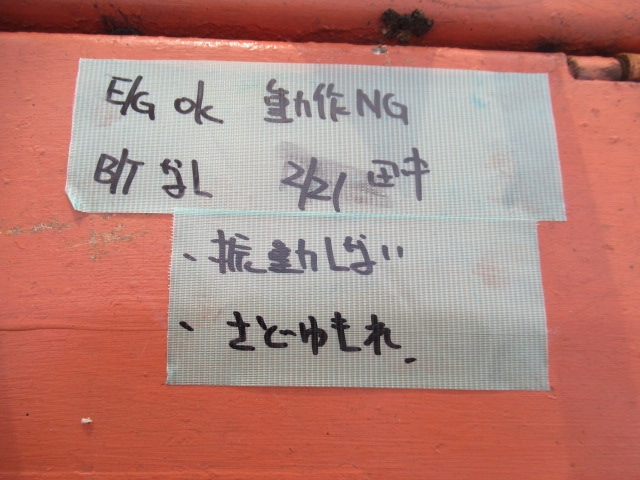 E/G ok 動作NG
B/T なし 2/21 田中
、振動しない
、さどーゆもれ、